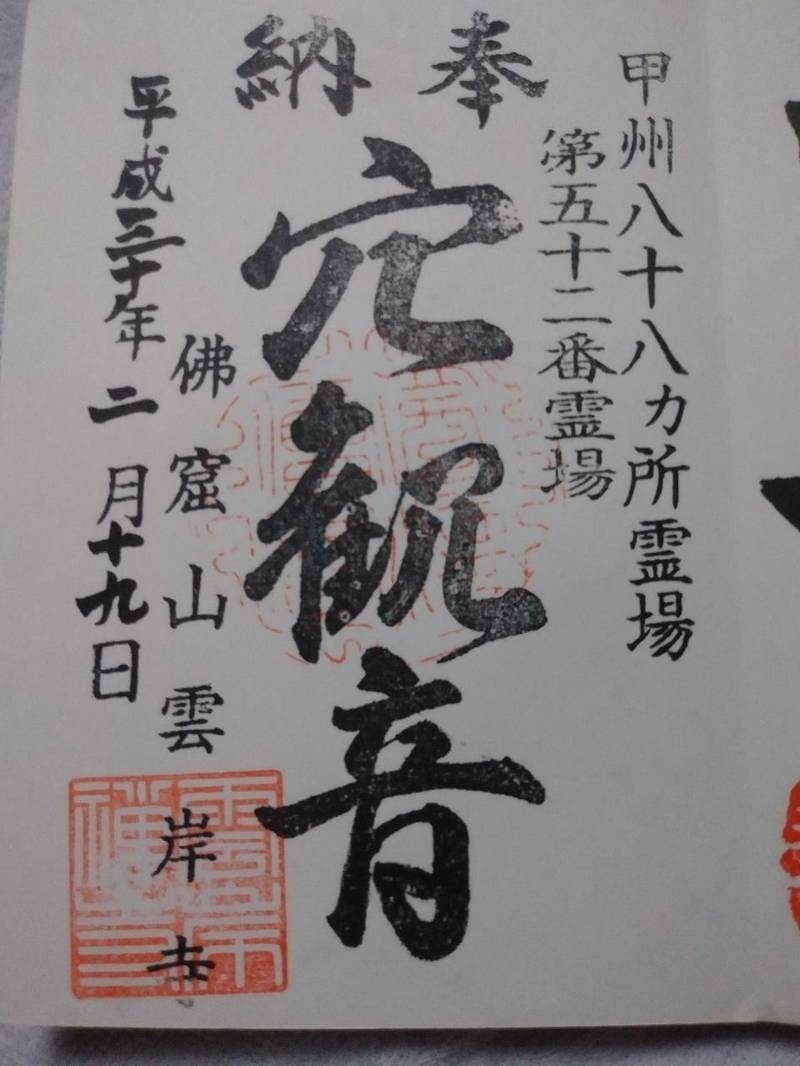 甲州八十八カ所霊場
第五十二番霊場
奉納
穴観音
佛窟山雲岸寺
平成三十年二月十九日